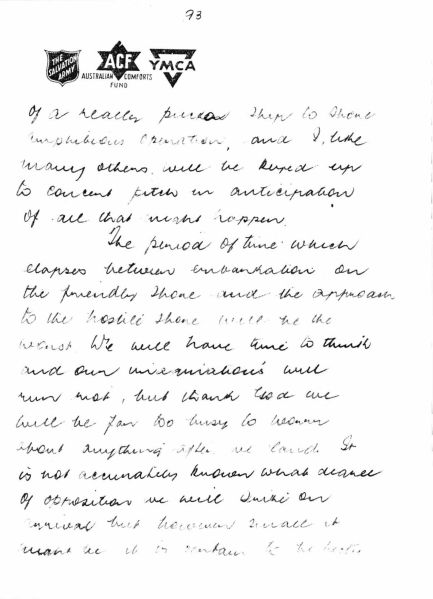 93
THE SALVATION ARMY
ACF
AUSTRALIAN COMFORTS FUND
YMCA
of a really ship to shore
amphibious operation, and I, like
many others will be keyed up
to concert pitch in anticipation
of all that might happen.
The period of time which
elapses between embarkation on
the friendly shore and the approach
to the hostile shore will be the
worst. We will have time to think
and our imaginations will
run riot, but thank God we
will be far too busy to
about anything after we land. It
is not accurately known what degree
of opposition we will on
arrival but however small it
it is certain to be